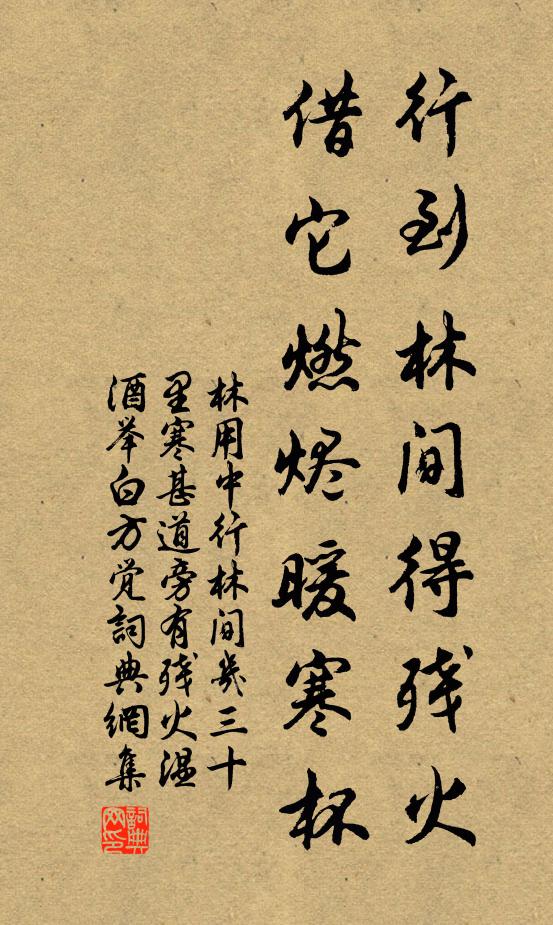 行到林间得残火
借它燃烬暖寒杯
林用中行林间几三十
里寒甚道旁有残火温
酒举白方觉詞典網集
詞典
网印